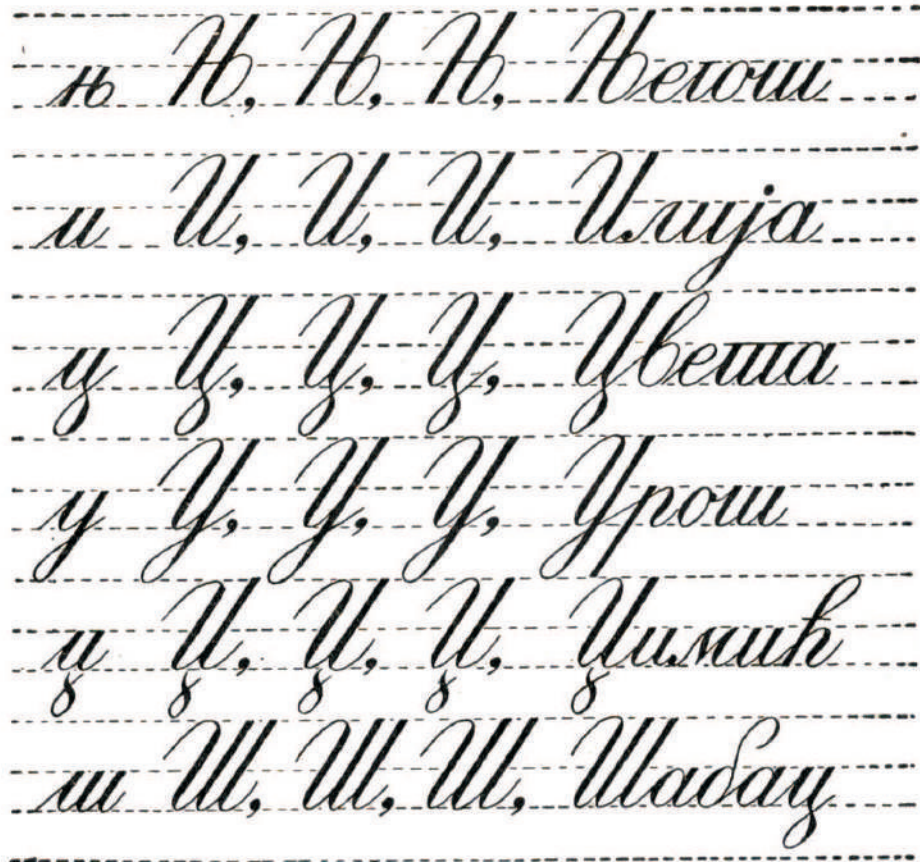 њ Њ, Њ, Њ, Његош
и И, И, И, Илија
ц Ц, Ц, Ц, Цвета
у У, У, У, Урош
џ Џ, Џ, Џ, Џимић
ш Ш, Ш, Ш, Шабац